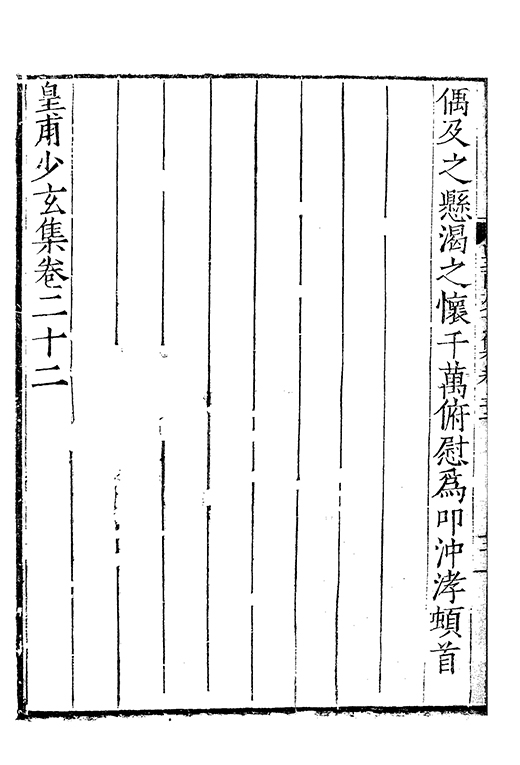 偶及之懸渴之懷千萬俯慰爲叩沖涍頓首
皇甫少玄集卷二十二